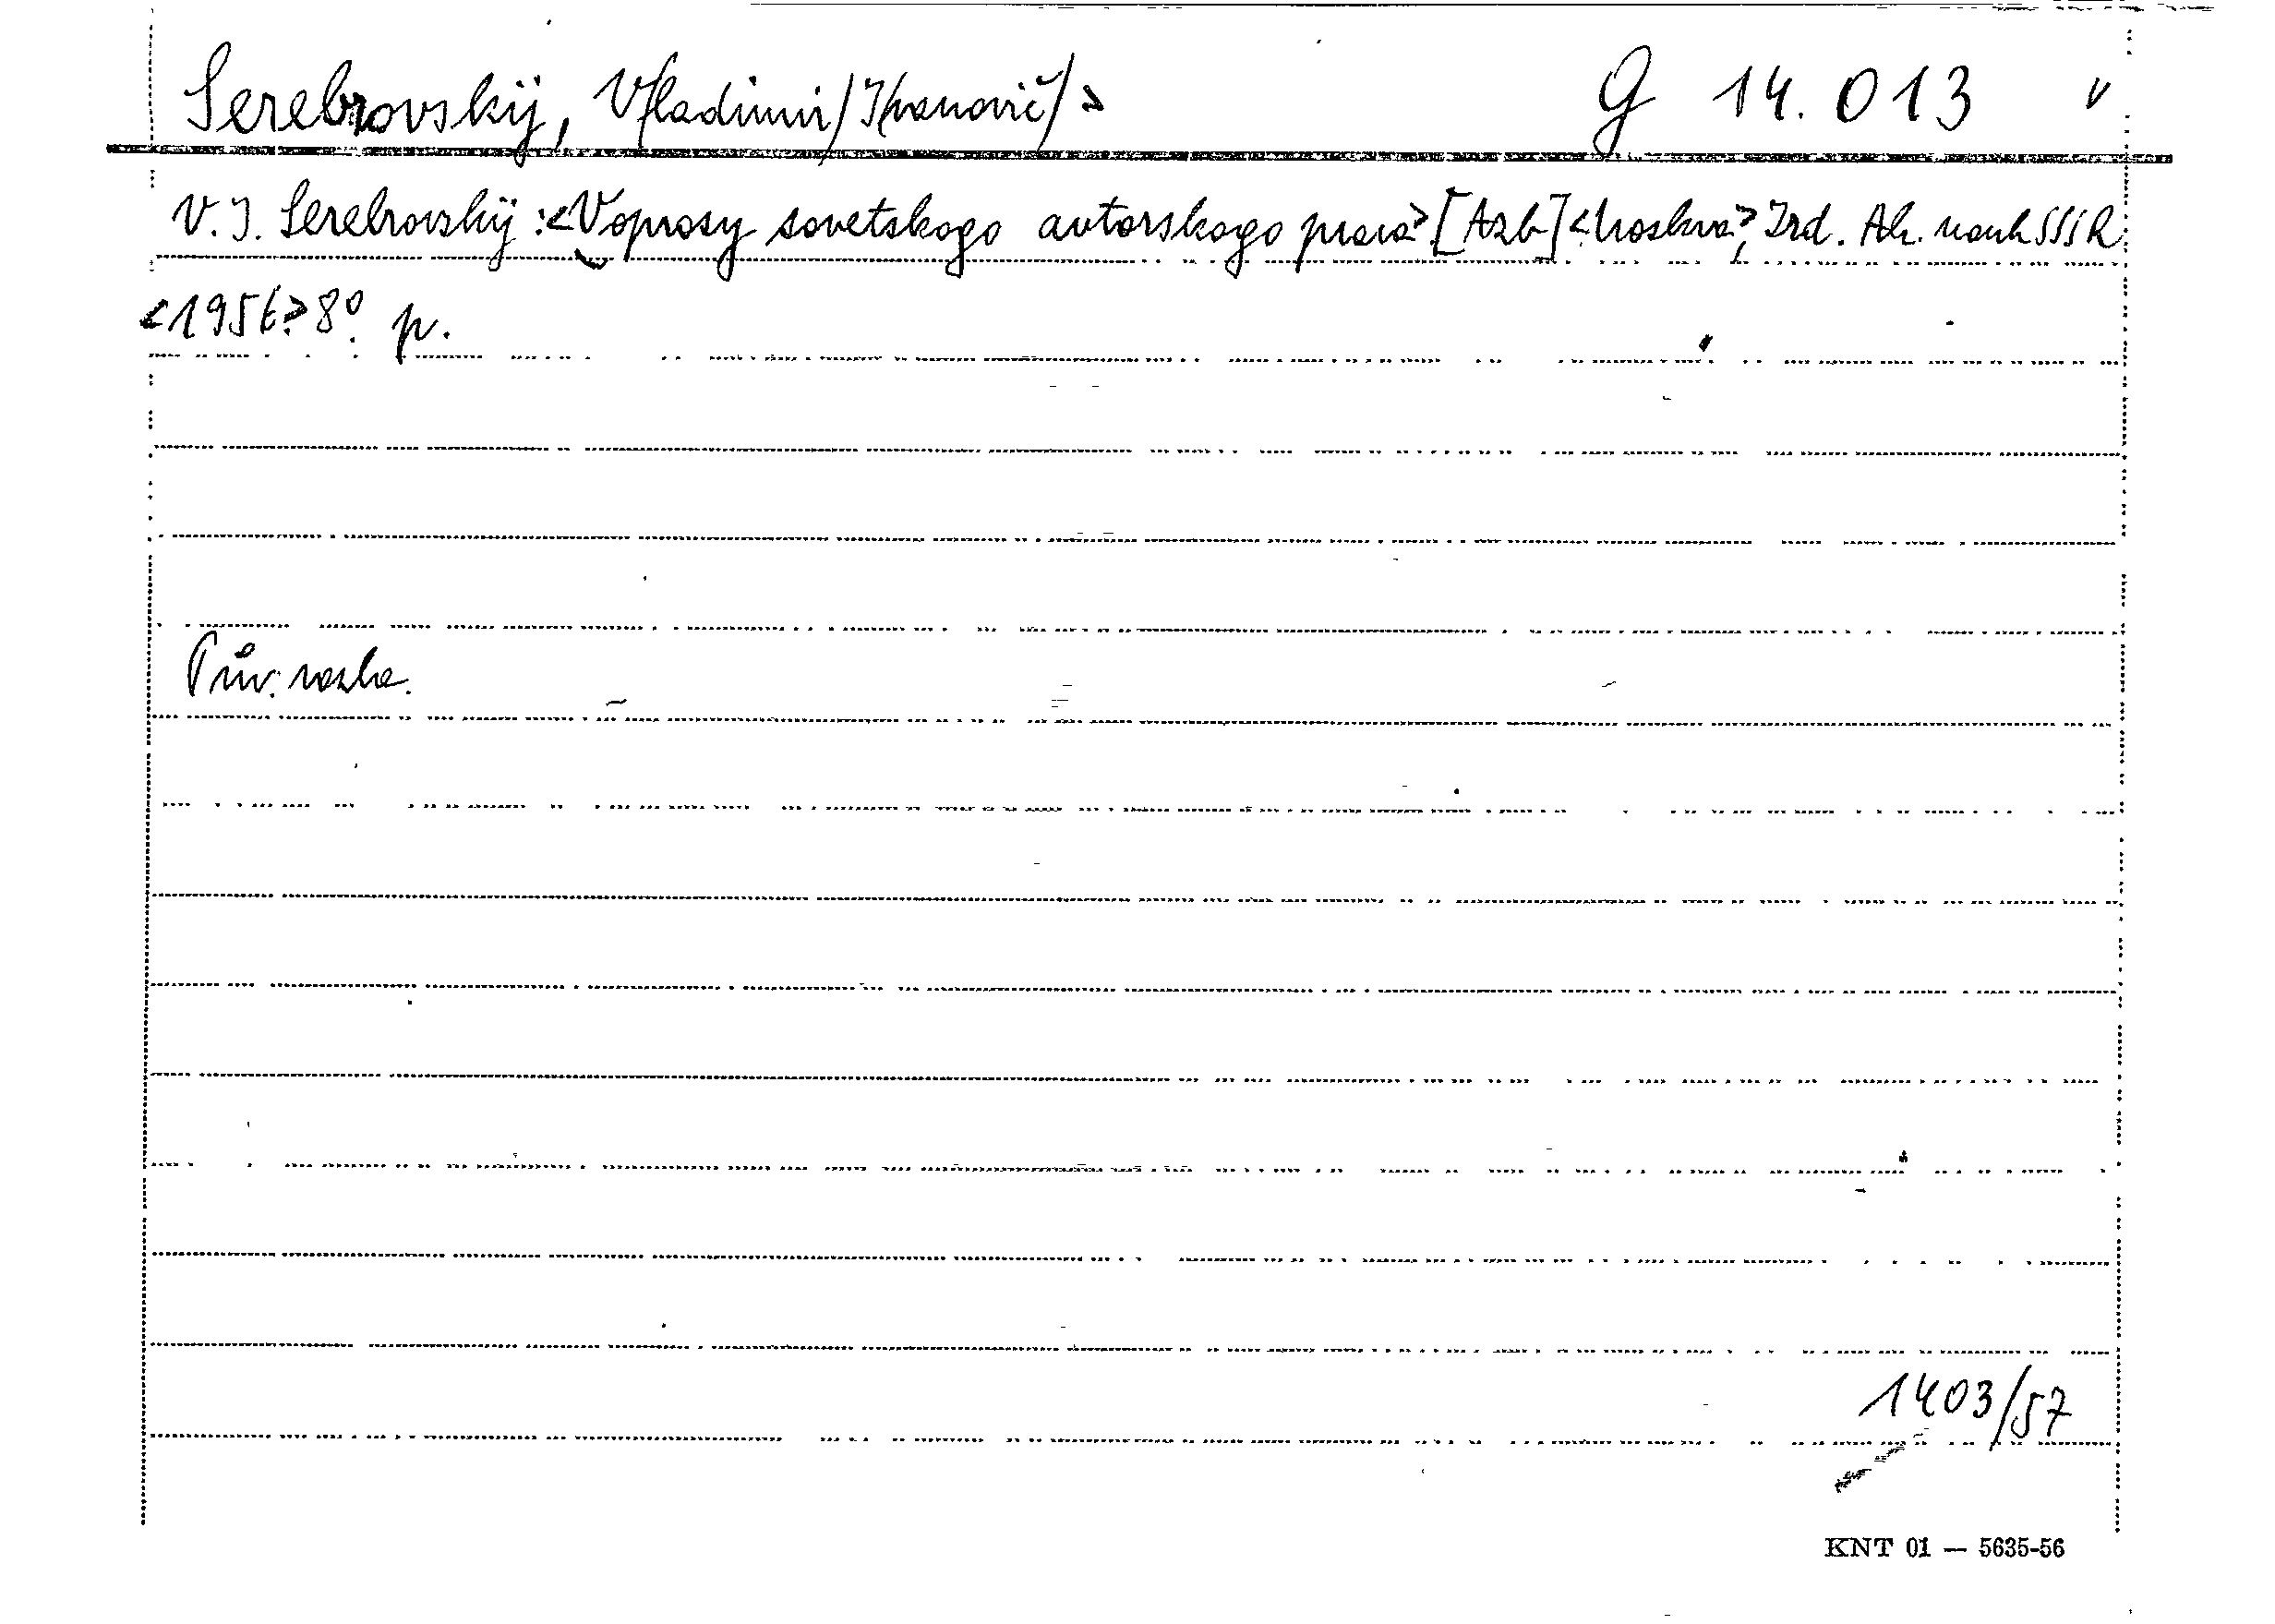 Serebrovskij, V/ladimir/ I/vanovič/> G 14.013 v
V. I. Serebrovskij:<Voprosy sovetskogo avtorskogo prava>.[Azb] <Moskva>, Izd. Ak. nauk SSSR
<1956>. 8°. p.
Pův. vazba.
1403/57
KNT 01 — 5635-56